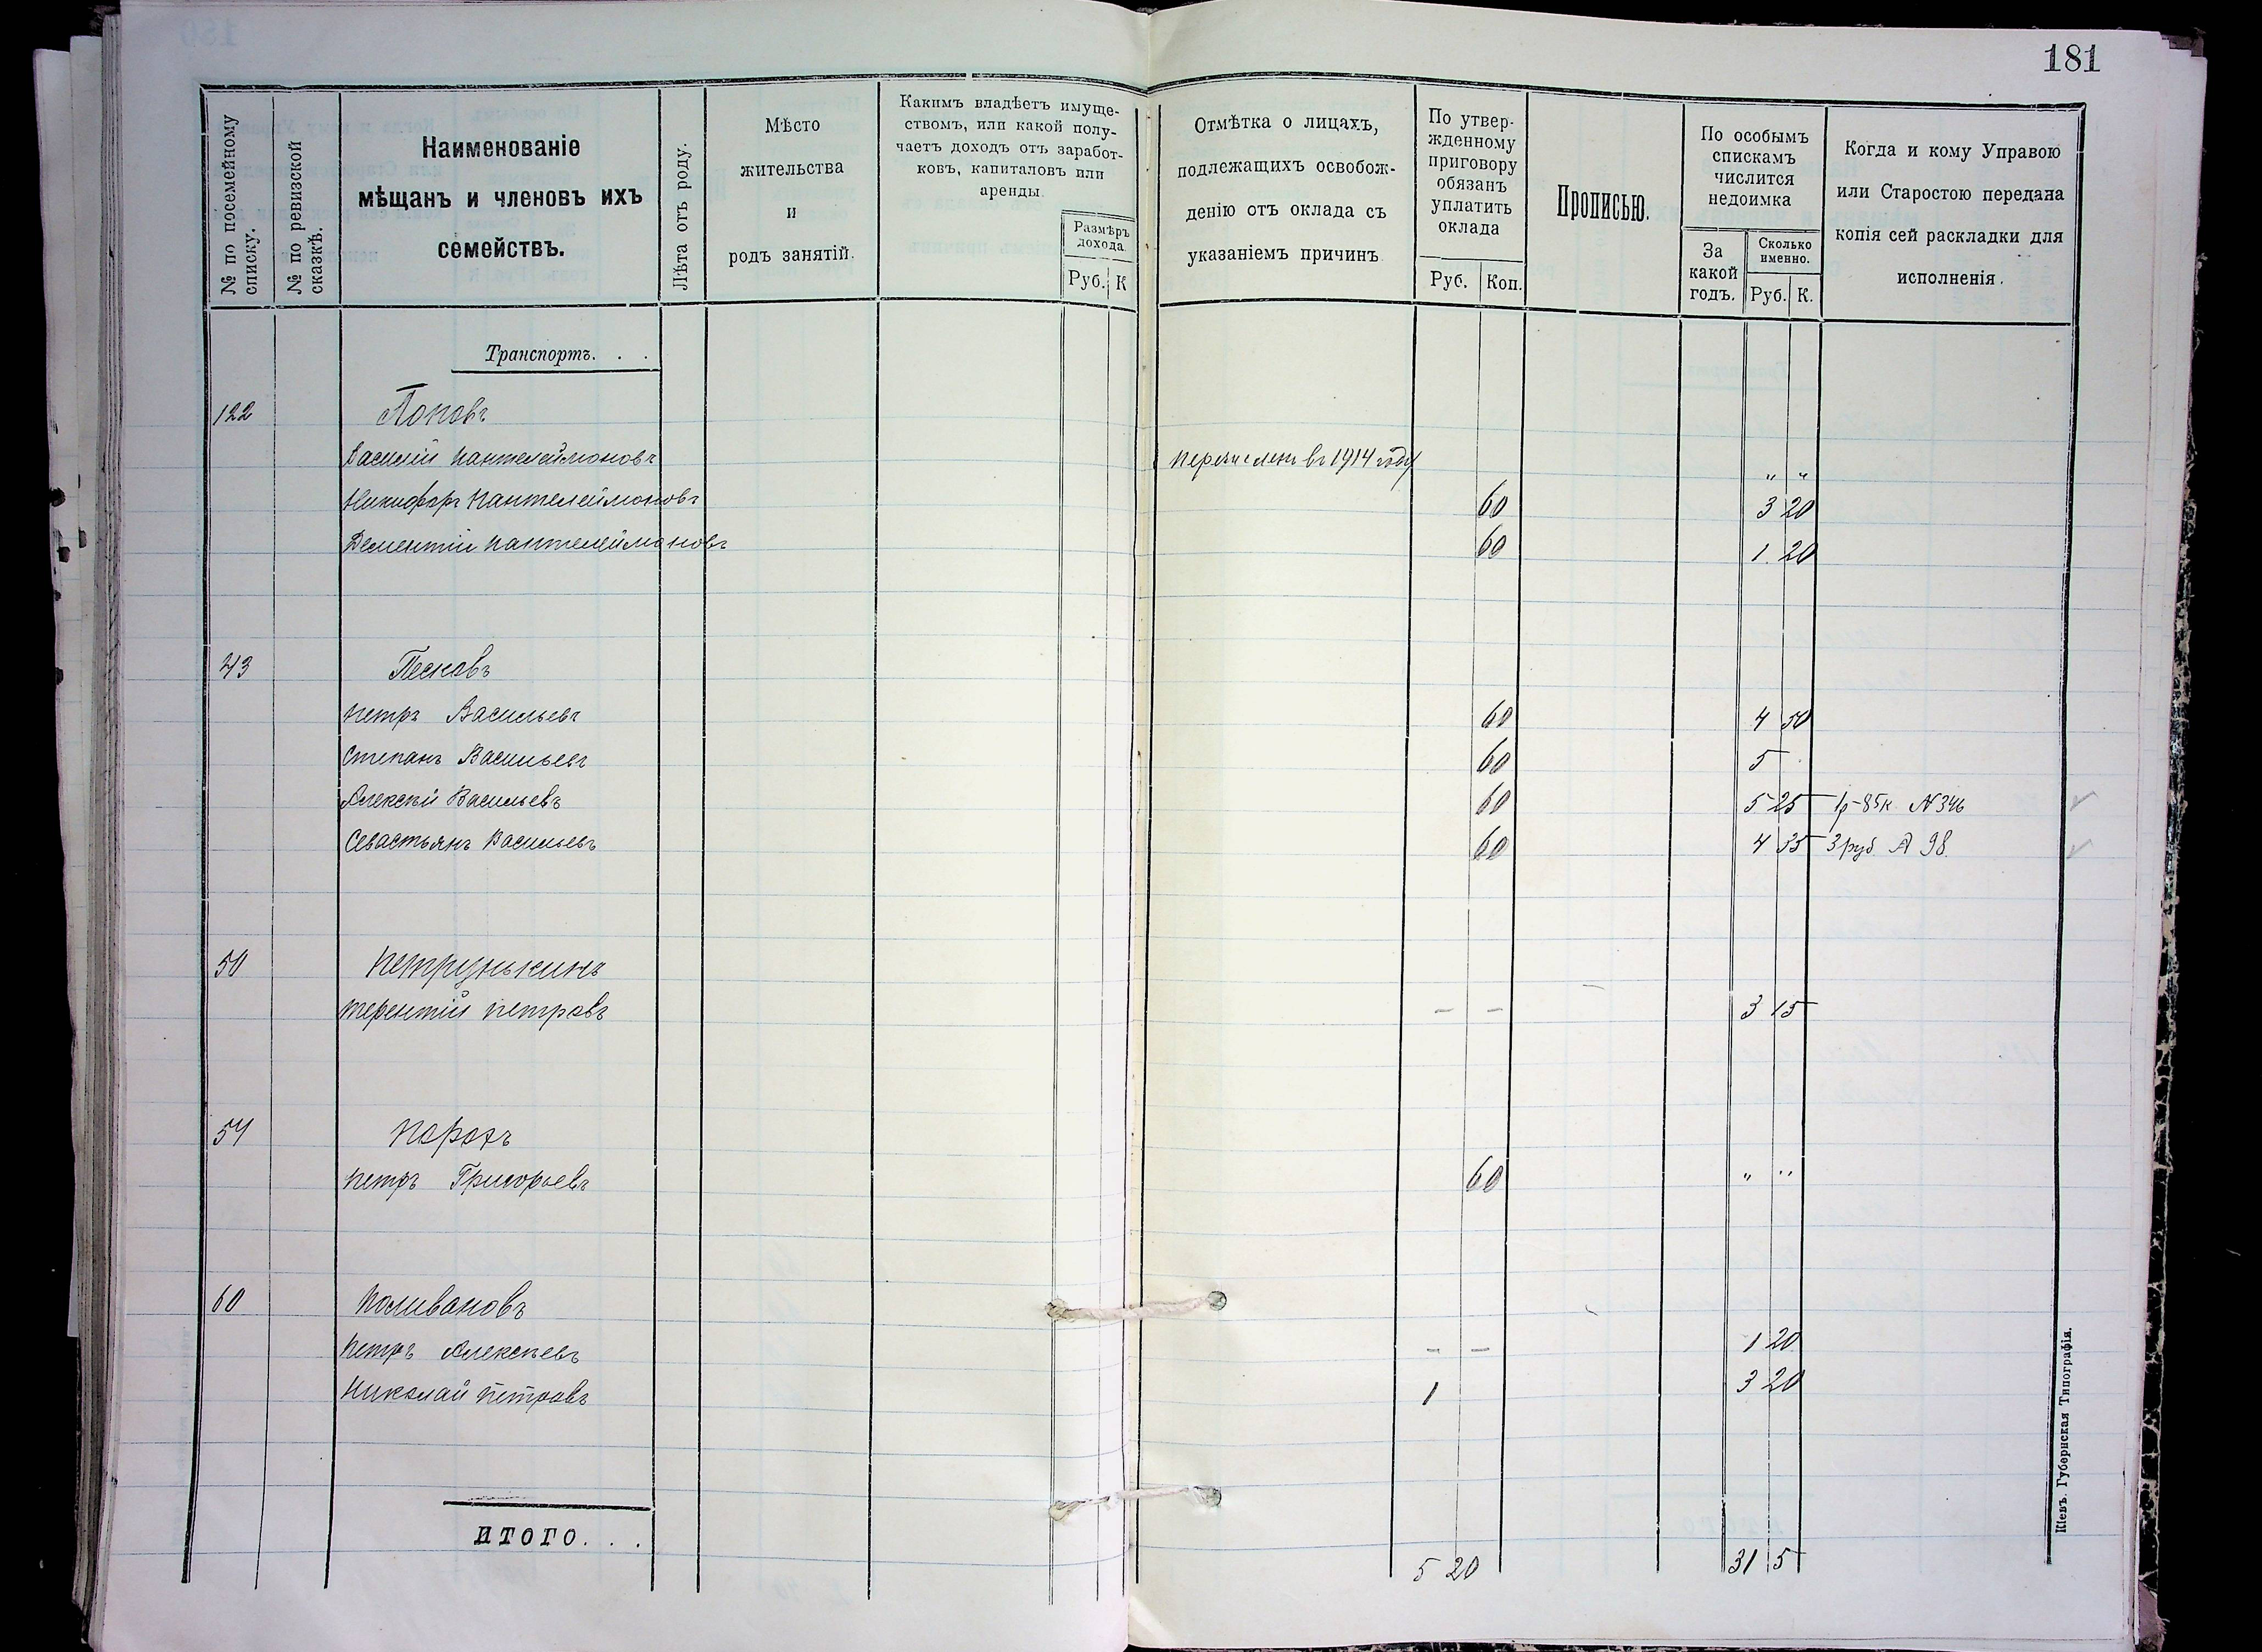 181
№ по посемейному списку.
№ по ревизской сказкѣ.
Наименованіе
мѣщанъ и членовъ ихъ
семействъ.
Лѣта отъ роду.
Мѣсто
жительства
и
родъ занятій.
Какимъ владѣетъ имуще-
ствомъ, или какой полу-
чаетъ доходъ отъ заработ-
ковъ, капиталовъ или
аренды
Размѣръ
дохода
Руб. К
Отмѣтка о лицахъ,
подлежащихъ освобож-
денію отъ оклада съ
указаніемъ причинъ
По утвер-
жденному
приговору
обязанъ
уплатить
оклада
Руб. Коп.
Прописью.
По особымъ
спискамъ
числится
недоимка
За
какой
годъ.
Сколько
именно.
Руб. К.
Когда и кому Управою
или Старостою передана
копія сей раскладки для
исполненія.
Транспортъ. . .
122 Поповъ
Василій Пантелеймоновъ перечисленъ въ 1914 году " "
Никифоръ Пантелеймоновъ 60 3 20
Дементій Пантелеймоновъ 60 1. 20
43 Песковъ
Петръ Васильевъ 60 4 50
Степанъ Васильевъ 60 5
Алексѣй Васильевъ 60 5 25 1р-85к N 346
Севастьянъ Васильевъ 60 4 35 3 руб 98.
50 Петрунькинъ
Терентій Петровъ – – 3 15
54 Порохъ
Петръ Григорьевъ 60 " "
60 Поливановъ
Петръ Алексѣевъ – – 1 20
Николай Петровъ 1 3 20
ИТОГО. . . 5 20 31 5
Кіевъ. Губернская Типографія.